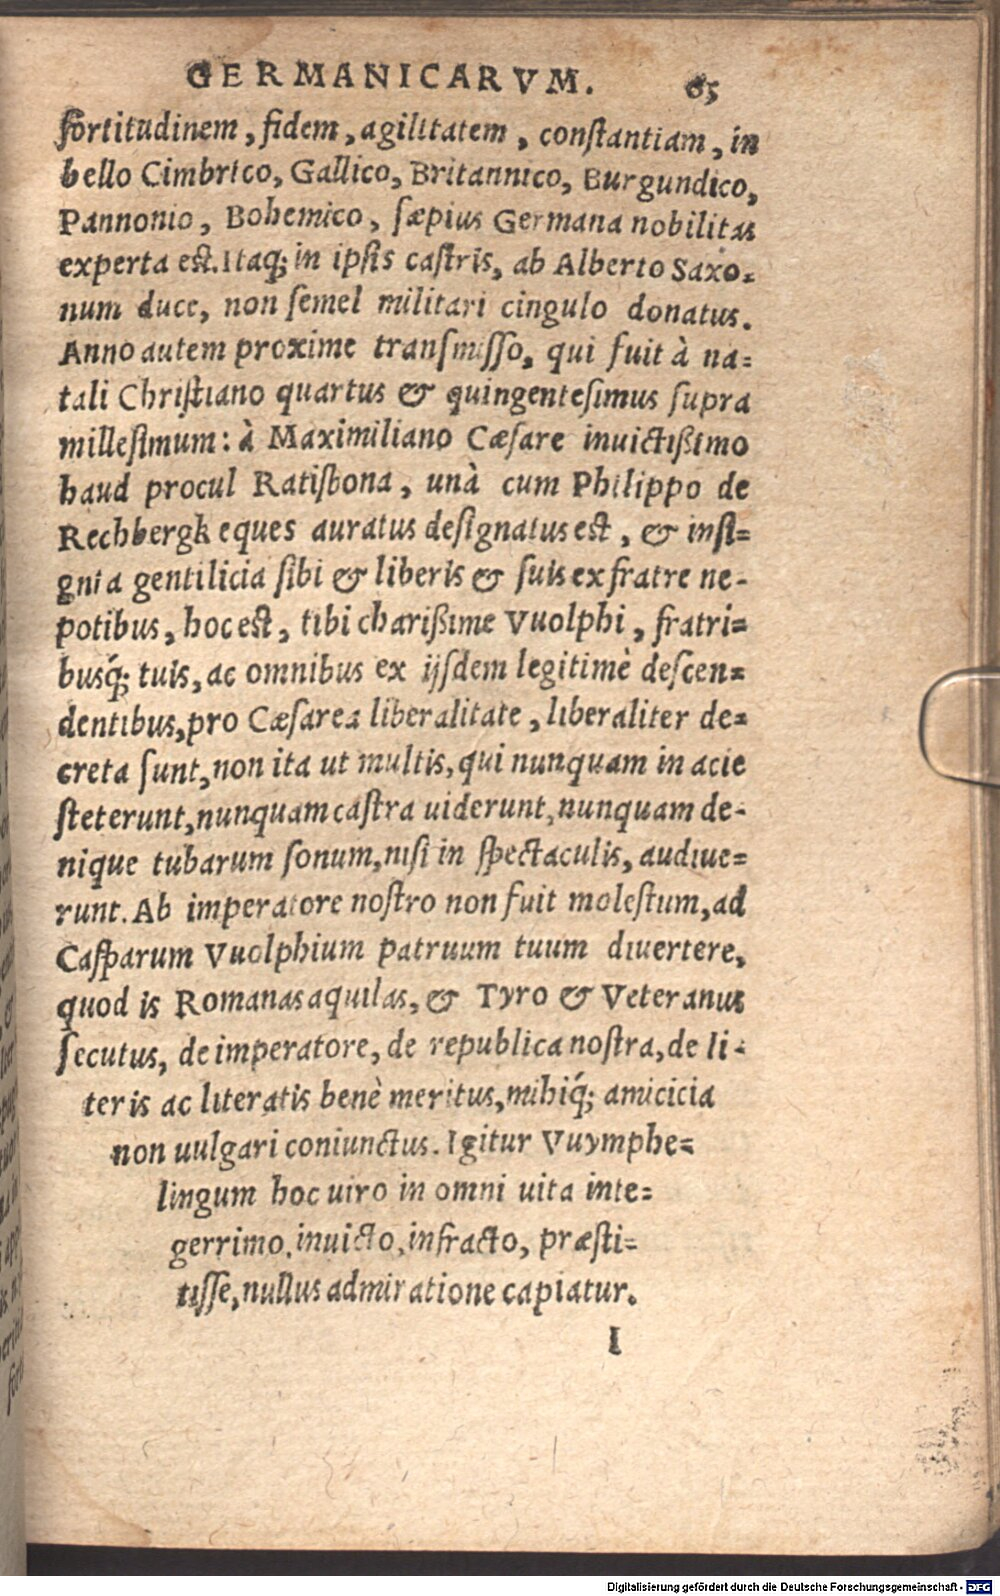 GERMANICARVM. 65
fortitudinem, fidem, agilitatem, constantiam, in
bello Cimbrico, Gallico, Britannico, Burgundico,
Pannonio, Bohemico, sæpius Germana nobilitas
experta est. Itaq; in ipsis castris, ab Alberto Saxo=
num duce, non semel militari cingulo donatus.
Anno autem proxime transmisso, qui fuit à na=
tali Christiano quartus & quingentesimus supra
millesimum: à Maximiliano Cæsare inuictißimo
haud procul Ratisbona, unà cum Philippo de
Rechbergk eques auratus designatus est, & insi=
gnia gentilicia sibi & liberis & suis ex fratre ne-
potibus, hoc est, tibi charißime Vuolphi, fratri=
busq́; tuis, ac omnibus ex ijsdem legitimè descen=
dentibus, pro Cæsarea liberalitate, liberaliter de=
creta sunt, non ita ut multis, qui nunquam in acie
steterunt, nunquam castra uiderunt, nunquam de-
nique tubarum sonum, nisi in spectaculis, audiue=
runt. Ab imperatore nostro non fuit molestum, ad
Casparum Vuolphium patruum tuum diuertere,
quod is Romanas aquilas, & Tyro & Veteranus
secutus, de imperatore, de republica nostra, de li-
teris ac literatis benè meritus, mihiq́; amicicia
non uulgari coniunctus. Igitur Vuymphe=
lingum hoc uiro in omni uita inte=
gerrimo, inuicto, infracto, præsti=
tisse, nullus admiratione capiatur.
I
Digitalisierung gefördert durch die Deutsche Forschungsgemeinschaft - DFG